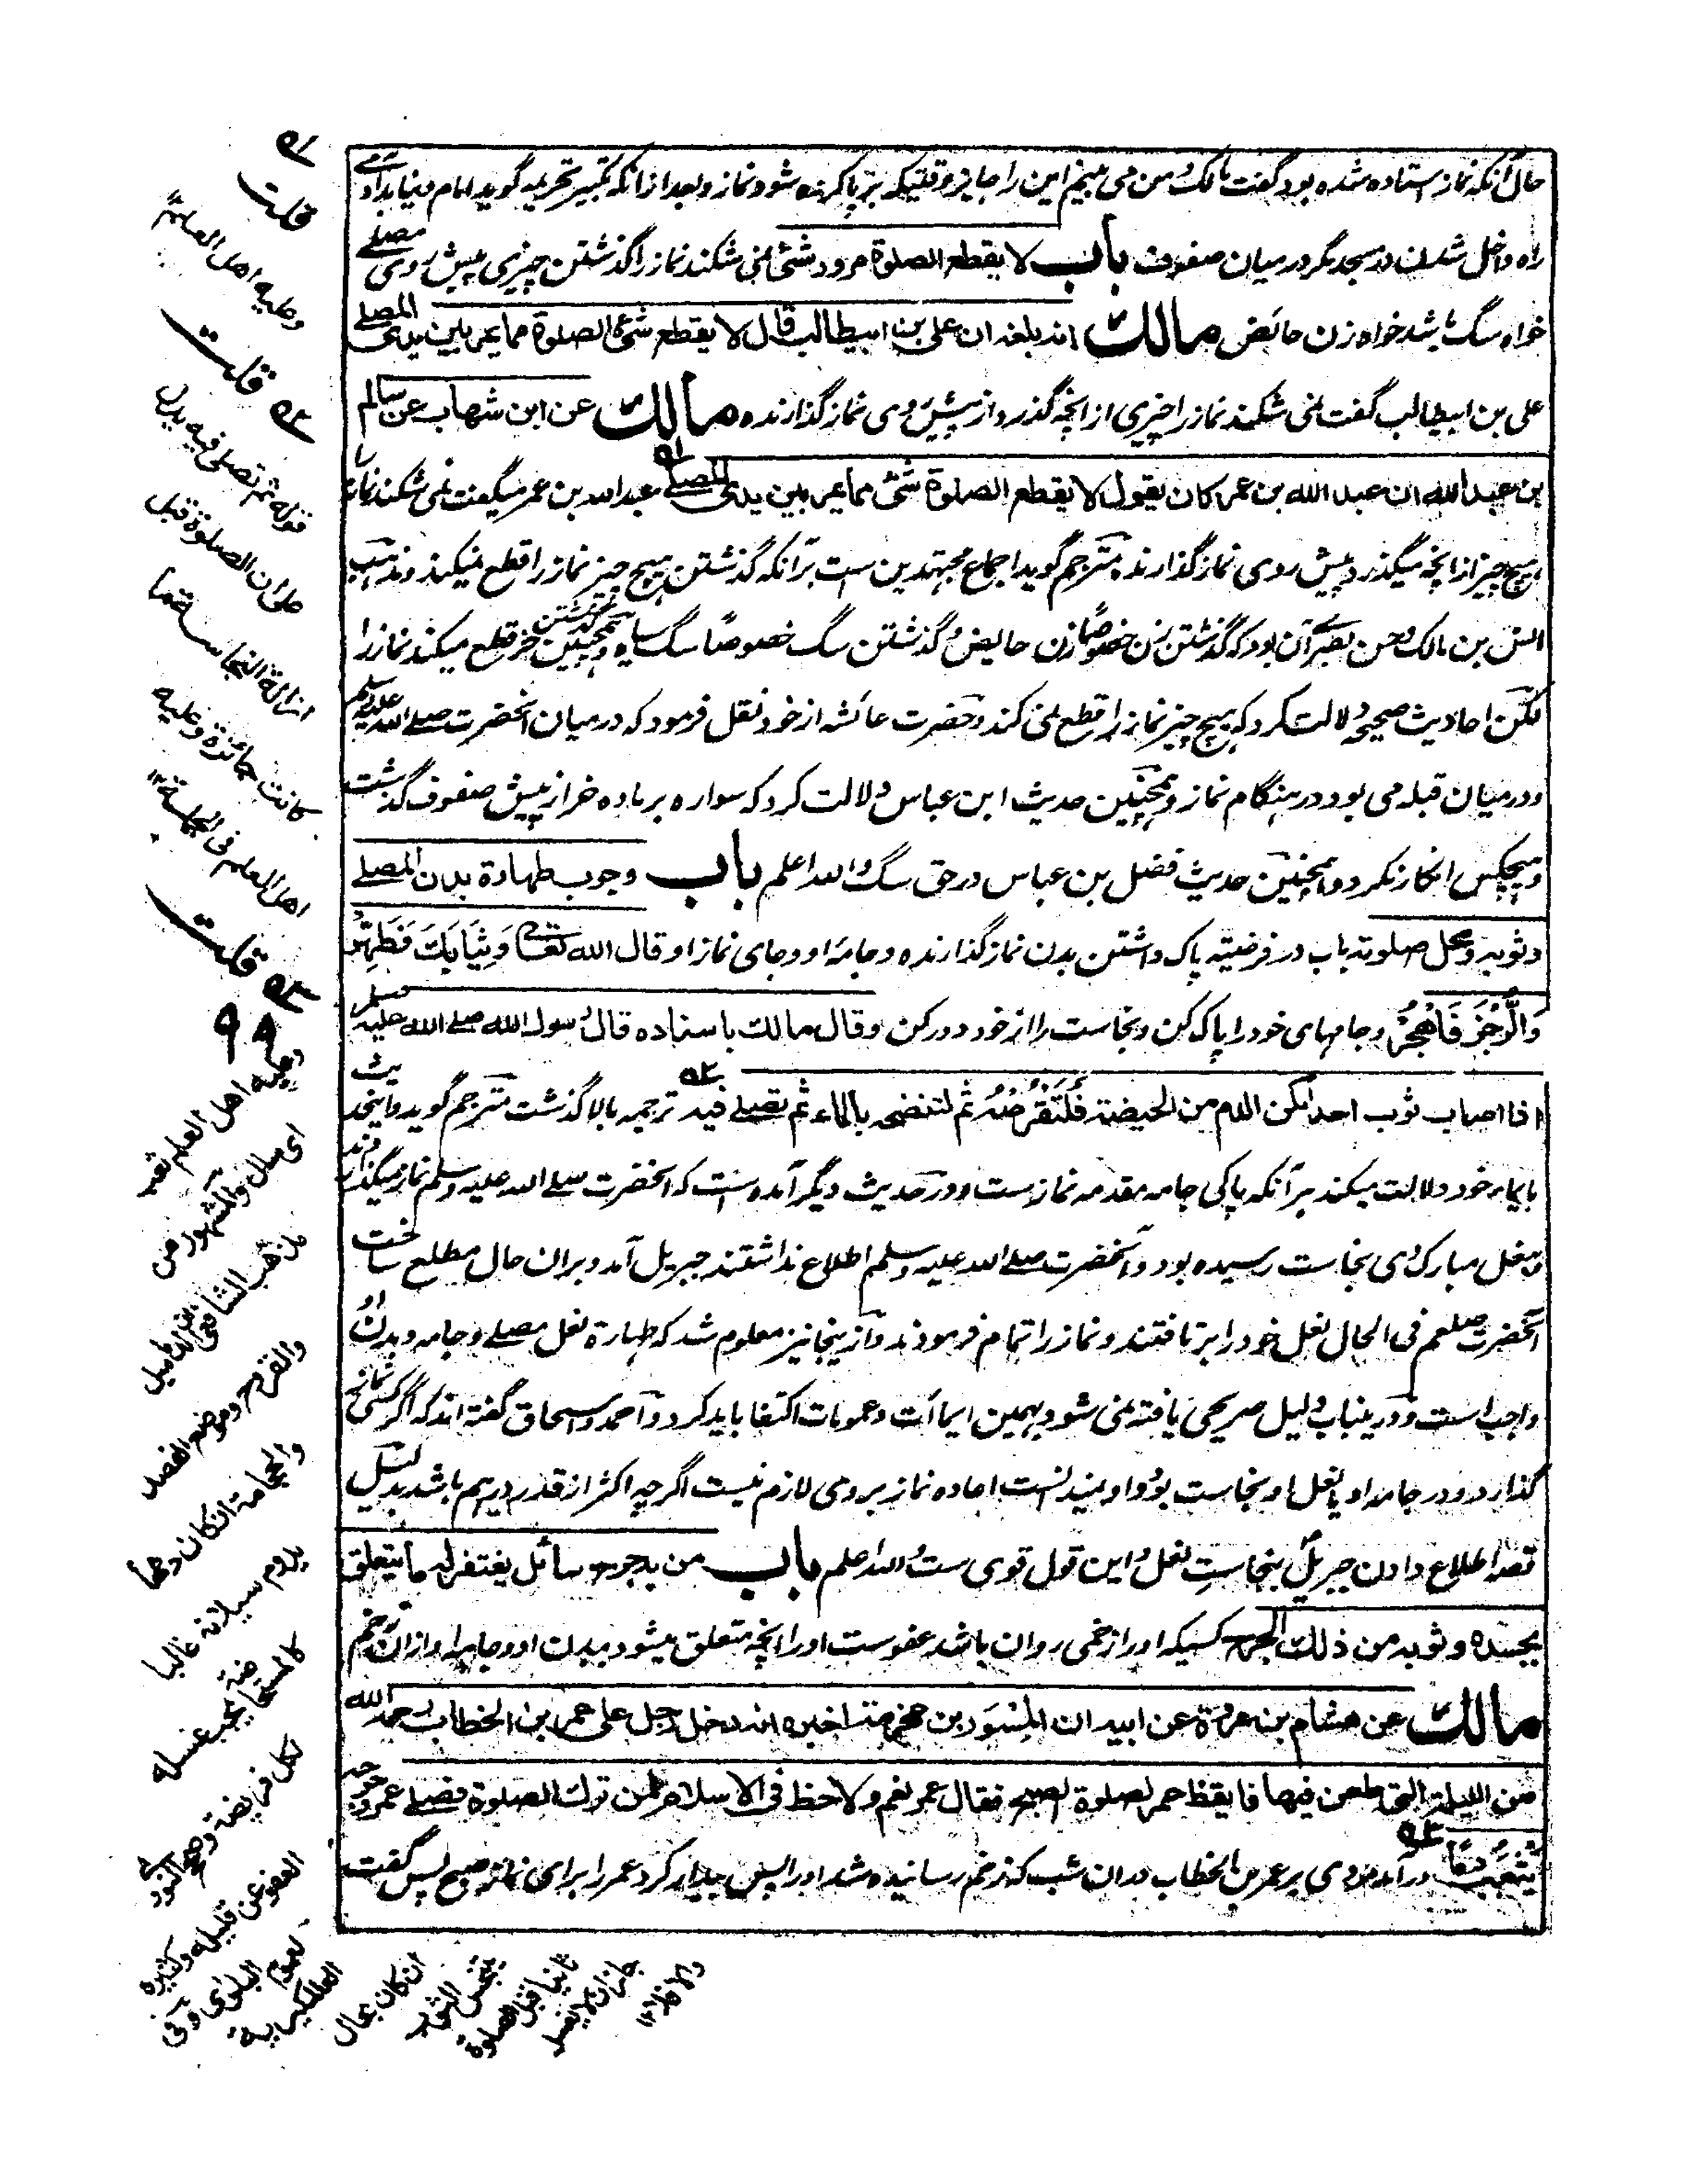 حال آنکه نماز استاده شده بود گفت مالک و من می بینم این را جایز وقتیکه برپا کرده شود نماز و بعد از انکه تکبیر تحریمه گوید امام و نیابد آدمی
راه داخل شدن در مسجد مگر درمیان صفوف باب لا یقطع الصلوة مرور شئ نمی شکند نماز را گذشتن چیزی پیش روی مصلے
خواه سگ باشد خواه زن حائض مالک انه بلغه ان علی بن ابیطالب قال لا یقطع شئ الصلوة مما یمر بین یدی المصلے
علی بن ابیطالب گفت نمی شکند نماز را چیزی از انچه گذرد از پیش روی نماز گذارنده مالک عن ابن شهاب عن سالم
بن عبد الله ان عبد الله بن عمر کان یقول لا یقطع الصلوة شئ مما یمر بین یدی المصلے عبد الله بن عمر میگفت نمی شکند نماز را
هیچ چیز از انچه میگذرد پیش روی نماز گذارنده مترجم گوید اجماع مجتهدین ست برآنکه گذشتن هیچ چیز نماز را قطع نمیکند و مذهب
انس بن مالک و حسن بصری آن بود که گذشتن زن خصوصًا زن حایض و گذشتن سگ خصوصًا سگ سیاه و همچنین گذشتن خر قطع میکند نماز را
لکن احادیث صحیحه دلالت کرد که هیچ چیز نماز را قطع نمی کند و حضرت عائشه از خود نقل فرمود که درمیان آنحضرت صلے الله علیه وسلم
و درمیان قبله می بود در هنگام نماز و همچنین حدیث ابن عباس دلالت کرد که سواره بر ماده خر از پیش صفوف گذشت
و هیچکس انکار نکرد و همچنین حدیث فضل بن عباس در حق سگ والله اعلم باب وجوب طهارة بدن المصلے
وثوبه ومحل صلوته باب در فرضیته پاک داشتن بدن نماز گذارنده و جامه او و جای نماز او قال الله تعالی وَثِیَابَكَ فَطَهِّرْ
وَالرُّجْزَ فَاهْجُرْ و جامهای خود را پاک کن و نجاست را از خود دور کن وقال مالک باسناده قال رسول الله صلے الله علیه وسلم
اذا اصاب ثوب احدٰکن الدم من الحیضة فَلْتَقْرُصْهُ ثم لتنضحه بالماء ثم تصلے فیه ترجمه بالا گذشت مترجم گوید و اینحدیث
بایماء خود دلالت میکند برآنکه پاکی جامه مقدمه نماز ست و در حدیث دیگر آمده است که آنحضرت صلے الله علیه وسلم نماز میگذاردند
و بنعل مبارک وی نجاست رسیده بود و آنحضرت صلے الله علیه وسلم اطلاع نداشتند جبریل آمد و بران حال مطلع ساخت
آنحضرت صلعم فی الحال نعل خود را برتافتند و نماز را اتمام فرمودند و از ینجا نیز معلوم شد که طهارة نعل مصلے و جامه و بدن او
واجب است و درینباب دلیل صریحی یافته نمی شود بهمین ایماآت و عمومات اکتفا باید کرد و احمد و اسحاق گفته اند که اگر کسی نمازے
گذارد و در جامه او یا نعل او نجاست بود و او نمیدانست اعاده نماز بر وی لازم نیست اگرچه اکثر از قدر درهم باشد بدلیل
قصه اطلاع دادن جبریل بنجاستِ نعل و این قول قوی ست والله اعلم باب من به جرح سائل یغتفر له ما یتعلق
بجسده وثوبه من ذلك الجرح کسیکه او را زخمی روان باشد عفوست او را انچه متعلق میشود ببدن او و جامه او ازان زخم
مالک عن هشام بن عروة عن ابیه ان المِسْوَر بن مخرمة اخبره انه دخل رجل علی عمر بن الخطاب رحمه الله
من اللیلة التی طعن فیها فایقظ عمر لصلوة الصبح فقال عمر نعم ولا حظ فی الاسلام لمن ترك الصلوة فصلے عمر وجرحه
یَثْعَبُ دَمًا درآمد مردی بر عمر بن الخطاب دران شب که زخم رسانیده شد او را پس بیدار کرد عمر را برای نماز صبح پس گفت
قلت
وعلیه اهل العلم
قلت
قوله ثم تصلی فیه یدل
علی ان الصلوة قبل
ازالة النجاسة ما
کانت جائزة وعلیه
اهل العلم فی الجملة ١٢
قلت
وعلیه اهل العلم
والمشهور من
مذهب الشافعی ان الدمامیل
والقروح وموضع الفصد
والحجامة ان کان دمها
یدوم سیلانه غالبا
کالمستحاضة یجب غسله
لکل فریضة وصحح النووی
العفو عن قلیله وکثیره
لعموم البلوی وفی
العالمگیریة
ان کان بحال
یتنجس الثوب
ثانیا قبل الصلوة
جاز ان لا یغسل
والا فلا ١٢